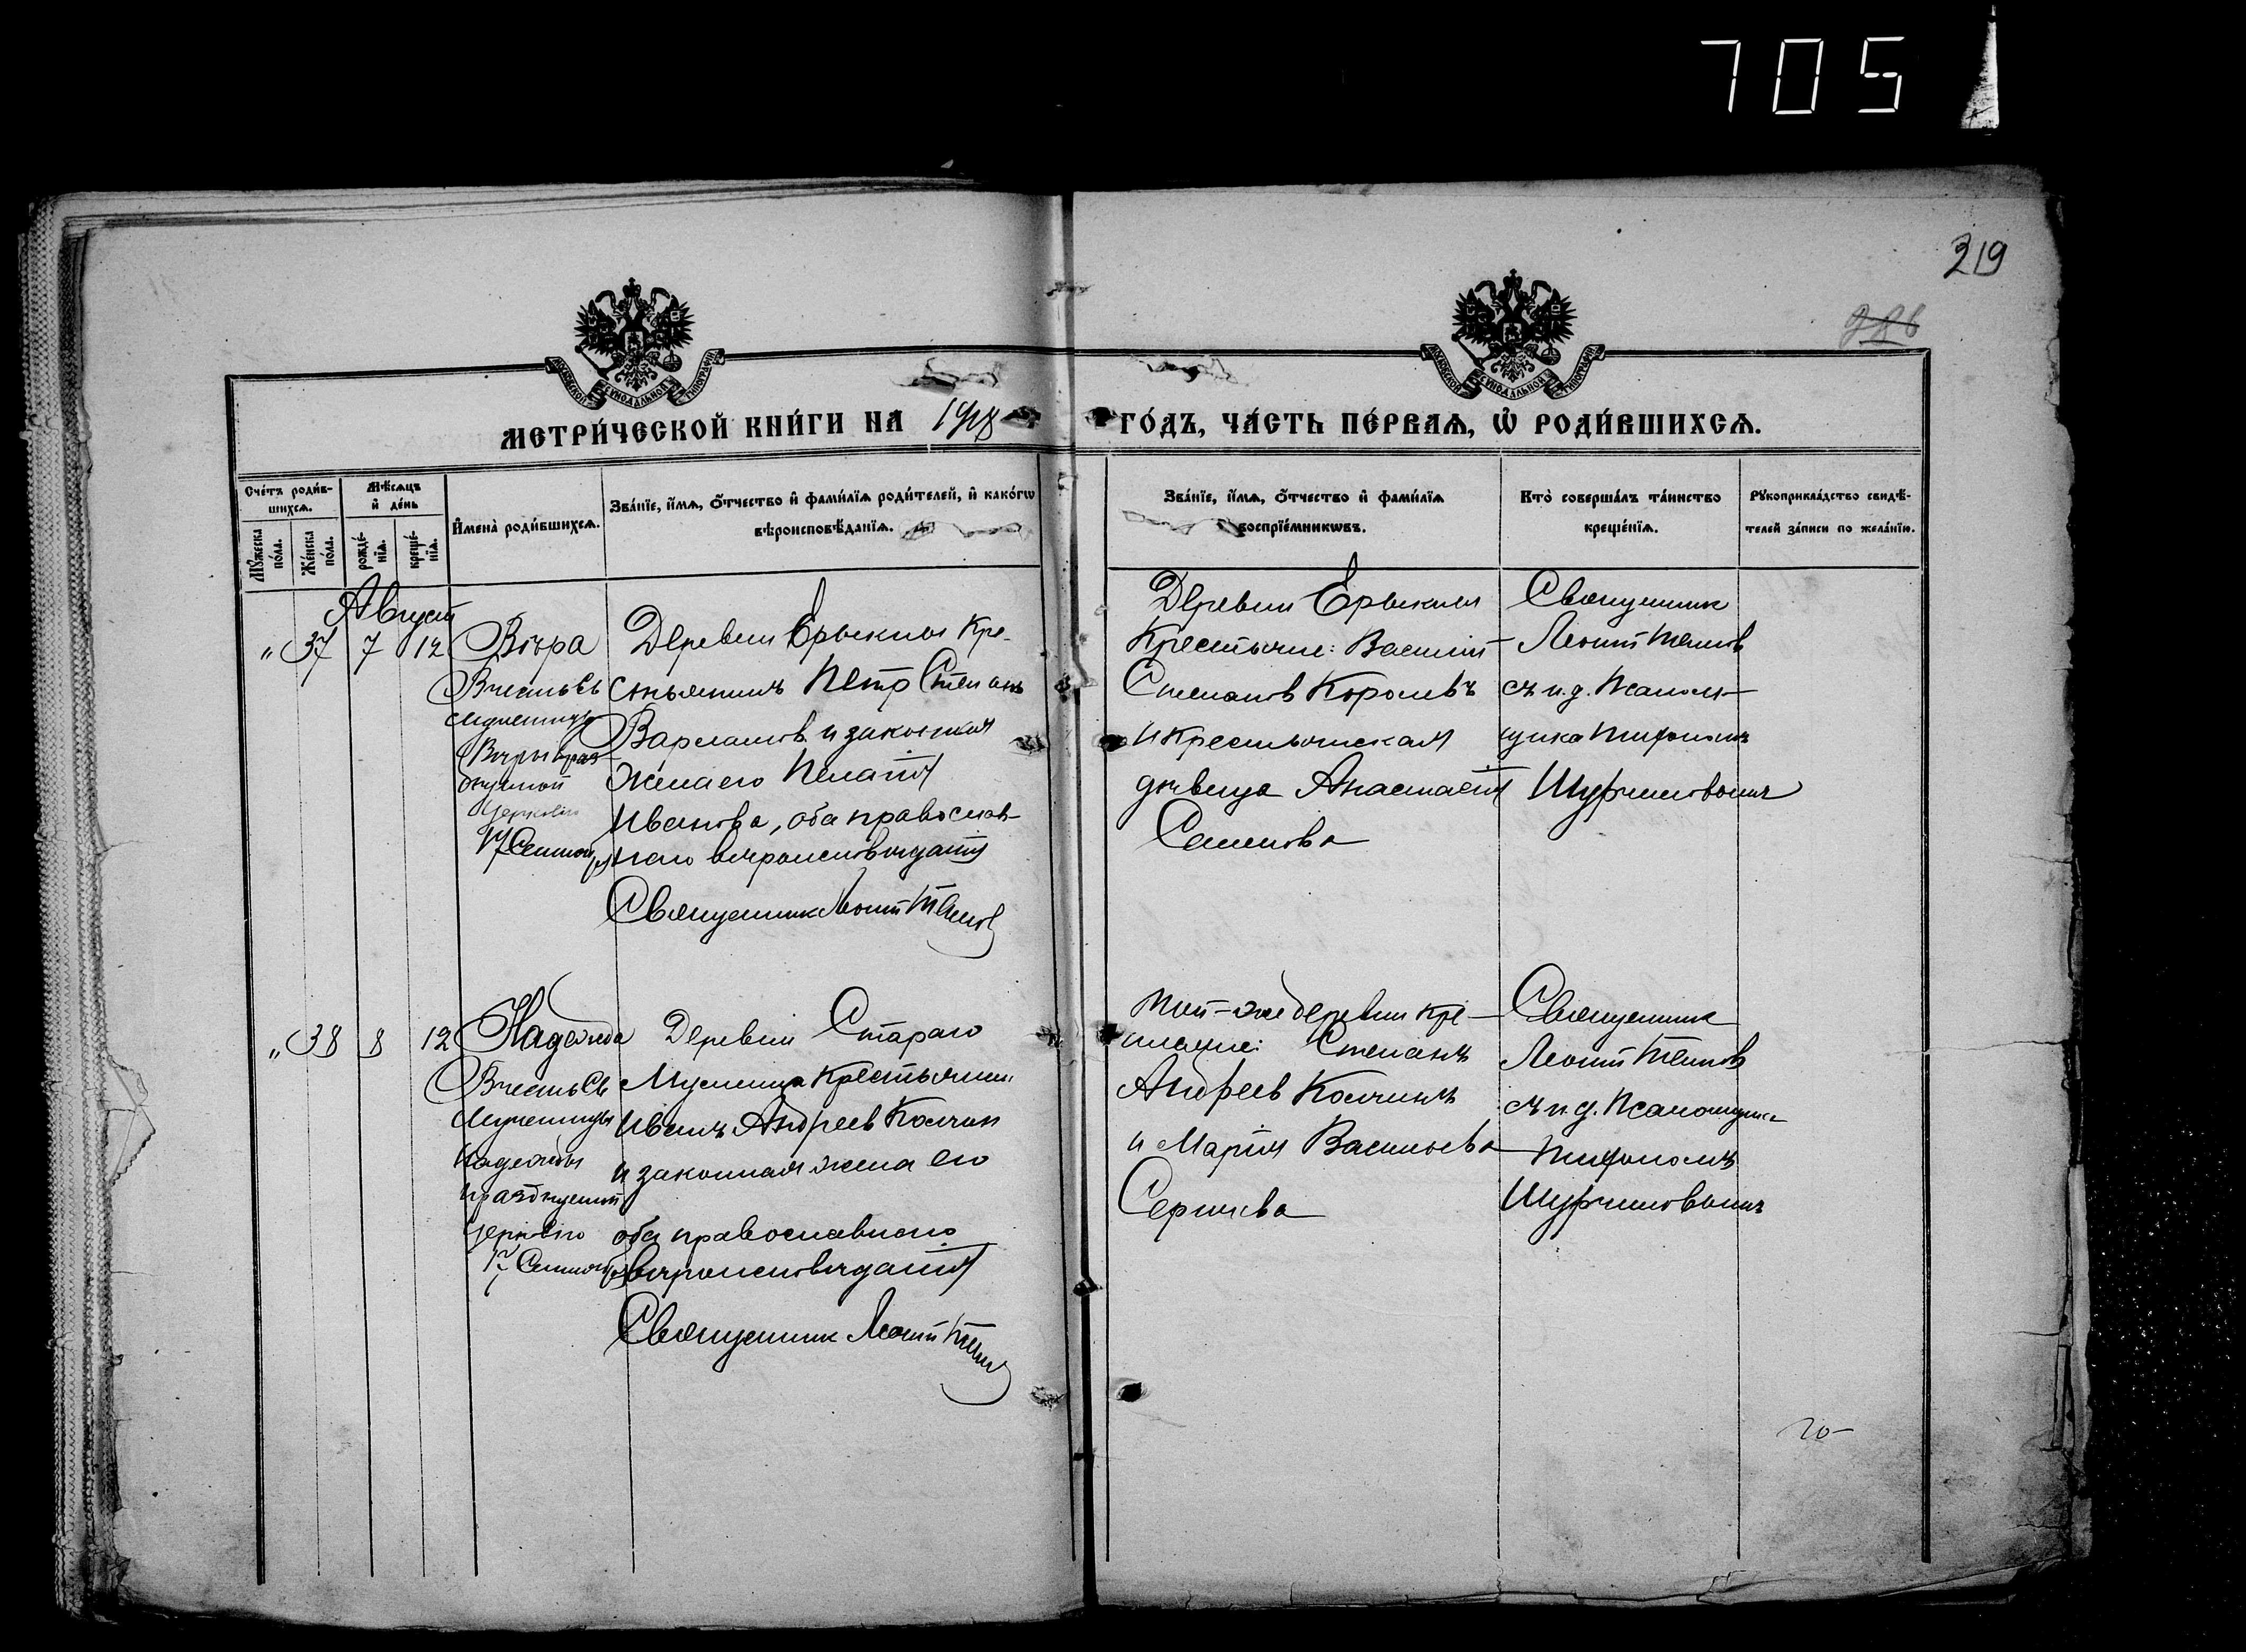 705
219
МЕТРИ́ЧЕСКОЙ КНИ́ГИ НА 1918
ГО́ДЪ, ЧА́СТЬ ПЕ́РВАѦ, Ѽ РОДИ́ВШИХСѦ.
Сче́тъ роди́в-
шихсѧ.
Мꙋ́жеска по́ла.
Же́нска по́ла.
Мѣ́сѧцъ и҆ де́нь
рожде́-нїѧ.
креще́-нїѧ.
И҆мена̀ роди́вшихсѧ.
Зва́нїе, и҆́мѧ, ѻ҆́тчество и҆ фами́лїѧ роди́телей, и҆ како́гѡ
вѣроисповѣ́данїѧ.
Зва́нїе, и҆́мѧ, ѻ҆́тчество и҆ фами́лїѧ
воспрїе́мникѡвъ.
Кто̀ соверша́лъ та́инство
креще́нїѧ.
Рꙋкоприкла́дство свидѣ́-
телей за́писи по жела́нїю.
Август
" 37 7 12 Вѣра
Въ честь Св
мученицы
Вѣры праз
днуемой
Церковью
17 Сентября
Деревни Ерыкла Кре-
стьянинъ Петр Степанъ
Варламов и законная
жена его Пелагія
Иванова, оба православ-
наго вѣроисповѣданія
Священник Леонид
Деревни Ерыкла
Крестьяне: Василій
Степанов Королевъ
и крестьянская
дѣвица Анастасія
Семенова
Священник
Леонид
съ и.д. Псалом-
щика
" 38 8 12 Надежда
Въ честь Св
Мученицы
Надежды
празднуемой
Церковью
17 Сентября
Деревни Стараго
Крестьянин
Иванъ Андреев Колчин
и законная жена его
оба православнаго
вѣроисповѣданія
Священник Леонид
Той-же деревни кре-
стьяне: Степанъ
Андреев Колчинъ
и Марія Васильева
Сергеева
Священник
Леонид
съ и.д. Псаломщика